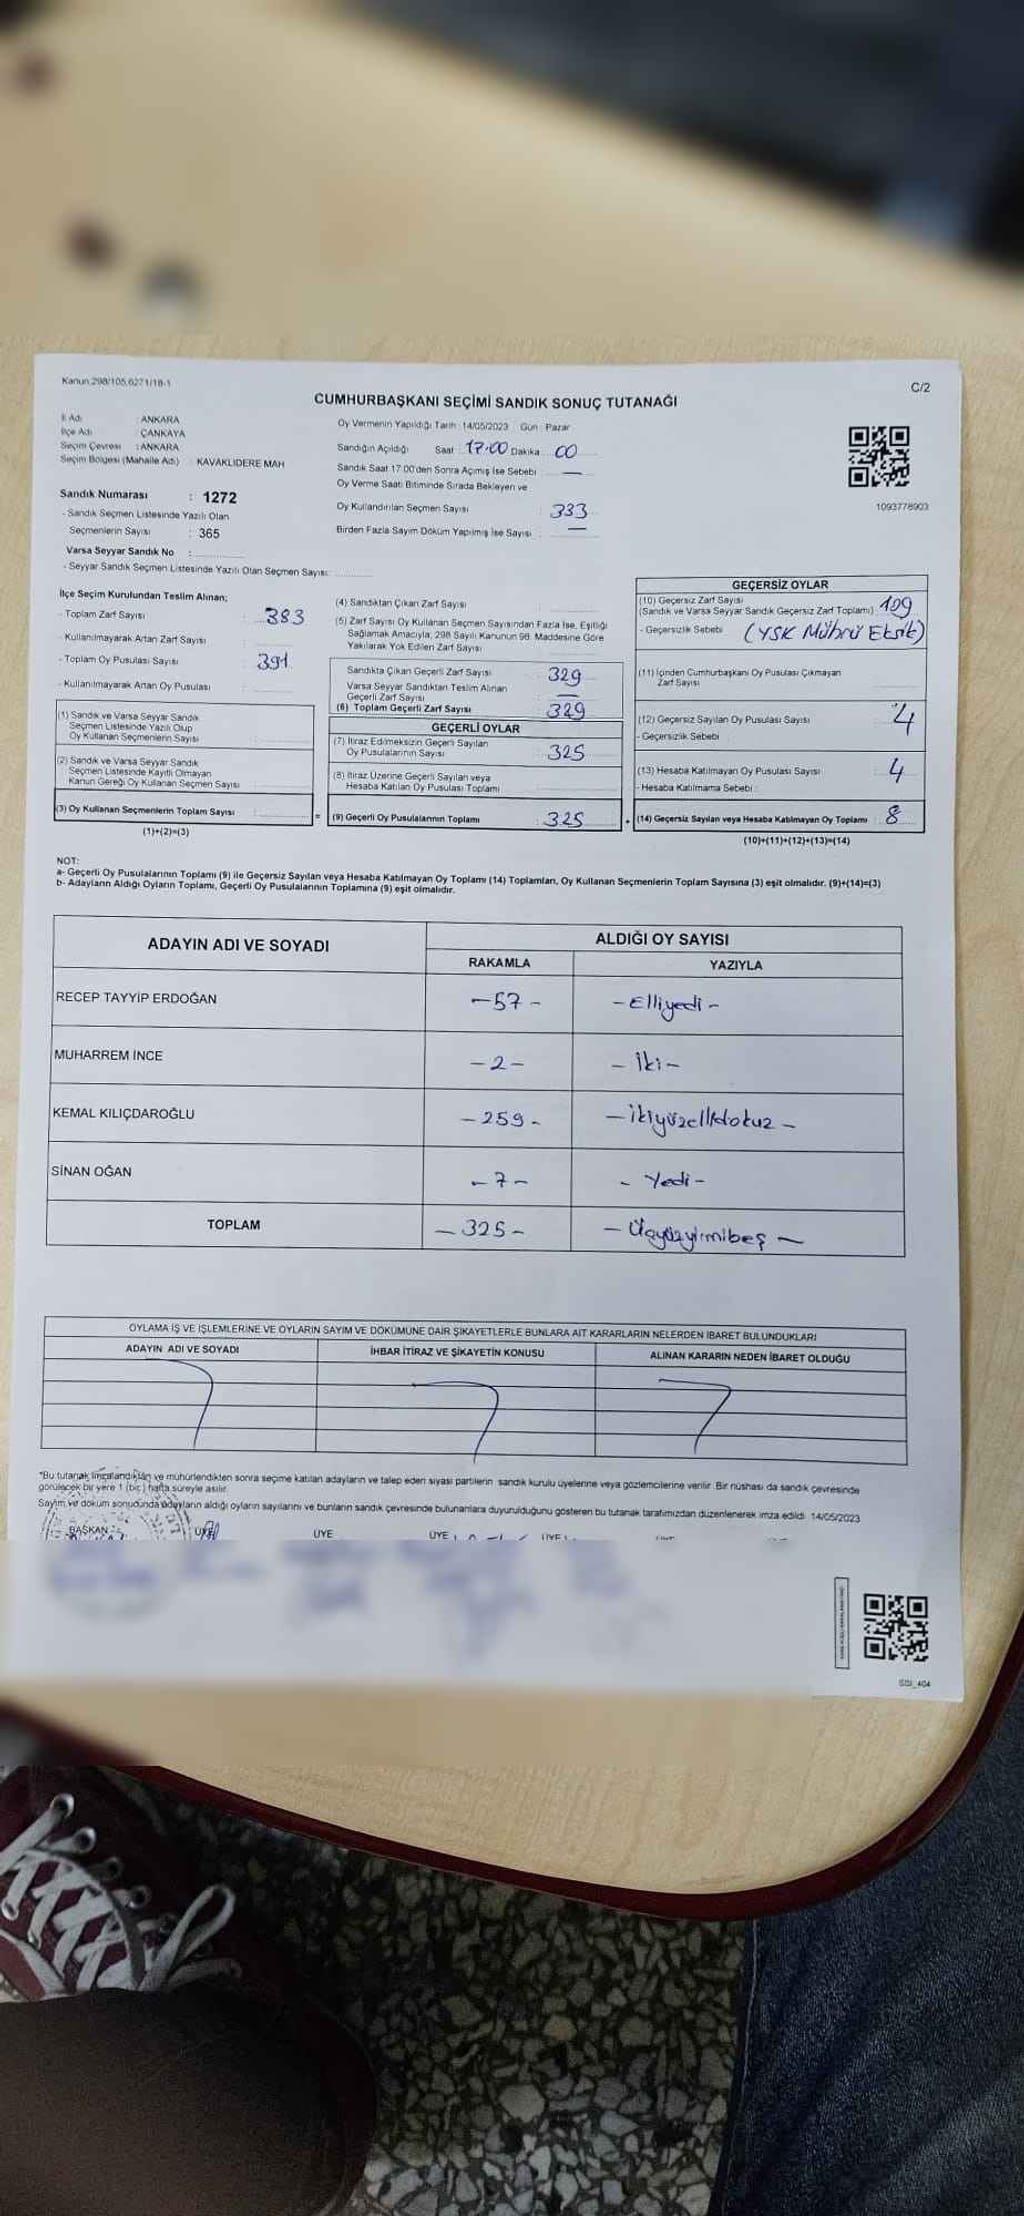 Kanun:298/105,6271/18-1
C/2
CUMHURBAŞKANI SEÇİMİ SANDIK SONUÇ TUTANAĞI
İl Adı : ANKARA
İlçe Adı : ÇANKAYA
Seçim Çevresi : ANKARA
Seçim Bölgesi (Mahalle Adı) : KAVAKLIDERE MAH
Sandık Numarası : 1272
- Sandık Seçmen Listesinde Yazılı Olan
Seçmenlerin Sayısı : 365
Varsa Seyyar Sandık No :
- Seyyar Sandık Seçmen Listesinde Yazılı Olan Seçmen Sayısı:
Oy Vermenin Yapıldığı Tarih : 14/05/2023 Gün : Pazar
Sandığın Açıldığı Saat : 17:00 Dakika 00
Sandık Saat 17.00'den Sonra Açılmış İse Sebebi : —
Oy Verme Saati Bitiminde Sırada Bekleyen ve
Oy Kullandırılan Seçmen Sayısı : 333
Birden Fazla Sayım Döküm Yapılmış İse Sayısı : —
1093778903
İlçe Seçim Kurulundan Teslim Alınan;
- Toplam Zarf Sayısı : 383
- Kullanılmayarak Artan Zarf Sayısı :
- Toplam Oy Pusulası Sayısı : 391
- Kullanılmayarak Artan Oy Pusulası :
(1) Sandık ve Varsa Seyyar Sandık
Seçmen Listesinde Yazılı Olup
Oy Kullanan Seçmenlerin Sayısı :
(2) Sandık ve Varsa Seyyar Sandık
Seçmen Listesinde Kayıtlı Olmayan
Kanun Gereği Oy Kullanan Seçmen Sayısı :
(3) Oy Kullanan Seçmenlerin Toplam Sayısı :
(1)+(2)=(3)
(4) Sandıktan Çıkan Zarf Sayısı :
(5) Zarf Sayısı Oy Kullanan Seçmen Sayısından Fazla İse, Eşitliği
Sağlamak Amacıyla, 298 Sayılı Kanunun 98. Maddesine Göre
Yakılarak Yok Edilen Zarf Sayısı :
Sandıkta Çıkan Geçerli Zarf Sayısı : 329
Varsa Seyyar Sandıktan Teslim Alınan
Geçerli Zarf Sayısı : —
(6) Toplam Geçerli Zarf Sayısı : 329
GEÇERLİ OYLAR
(7) İtiraz Edilmeksizin Geçerli Sayılan
Oy Pusulalarının Sayısı : 325
(8) İtiraz Üzerine Geçerli Sayılan veya
Hesaba Katılan Oy Pusulası Toplamı :
= (9) Geçerli Oy Pusulalarının Toplamı : 325
GEÇERSİZ OYLAR
(10) Geçersiz Zarf Sayısı
(Sandık ve Varsa Seyyar Sandık Geçersiz Zarf Toplamı) : 109
- Geçersizlik Sebebi : (YSK Mührü Eksik)
(11) İçinden Cumhurbaşkanı Oy Pusulası Çıkmayan
Zarf Sayısı
(12) Geçersiz Sayılan Oy Pusulası Sayısı : 4
- Geçersizlik Sebebi :
(13) Hesaba Katılmayan Oy Pusulası Sayısı : 4
- Hesaba Katılmama Sebebi :
+ (14) Geçersiz Sayılan veya Hesaba Katılmayan Oy Toplamı : 8
(10)+(11)+(12)+(13)=(14)
NOT:
a- Geçerli Oy Pusulalarının Toplamı (9) ile Geçersiz Sayılan veya Hesaba Katılmayan Oy Toplamı (14) Toplamları, Oy Kullanan Seçmenlerin Toplam Sayısına (3) eşit olmalıdır. (9)+(14)=(3)
b- Adayların Aldığı Oyların Toplamı, Geçerli Oy Pusulalarının Toplamına (9) eşit olmalıdır.
ADAYIN ADI VE SOYADI
ALDIĞI OY SAYISI
RAKAMLA YAZIYLA
RECEP TAYYİP ERDOĞAN -57- -Elliyedi-
MUHARREM İNCE -2- -İki-
KEMAL KILIÇDAROĞLU -259- -ikiyüzellidokuz-
SİNAN OĞAN -7- -Yedi-
TOPLAM -325- -Üçyüzyirmibeş-
OYLAMA İŞ VE İŞLEMLERİNE VE OYLARIN SAYIM VE DÖKÜMÜNE DAİR ŞİKAYETLERLE BUNLARA AİT KARARLARIN NELERDEN İBARET BULUNDUKLARI
ADAYIN ADI VE SOYADI İHBAR İTİRAZ VE ŞİKAYETİN KONUSU ALINAN KARARIN NEDEN İBARET OLDUĞU
*Bu tutanak imzalandıktan ve mühürlendikten sonra seçime katılan adayların ve talep eden siyasi partilerin sandık kurulu üyelerine veya gözlemcilerine verilir. Bir nüshası da sandık çevresinde
görülecek bir yere 1 (bir) hafta süreyle asılır.
Sayım ve döküm sonucunda adayların aldığı oyların sayılarını ve bunların sandık çevresinde bulunanlara duyurulduğunu gösteren bu tutanak tarafımızdan düzenlenerek imza edildi. 14/05/2023
BAŞKAN ÜYE ÜYE ÜYE ÜYE